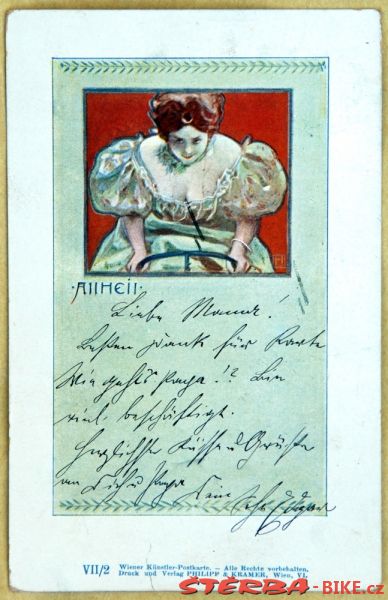 ·AllHeil·
Liebe Mama!
Besten Dank für Karte
Wie gehts Papa!? Bin
viel beschäftigt.
Herzlichste Küsse u Grüsse
an Dich u Papa
Dein
Sohn Edgar
VII/2 Wiener Künstler-Postkarte. – Alle Rechte vorbehalten.
Druck und Verlag PHILIPP & KRAMER, Wien, VI.
STERBA-BIKE.cz